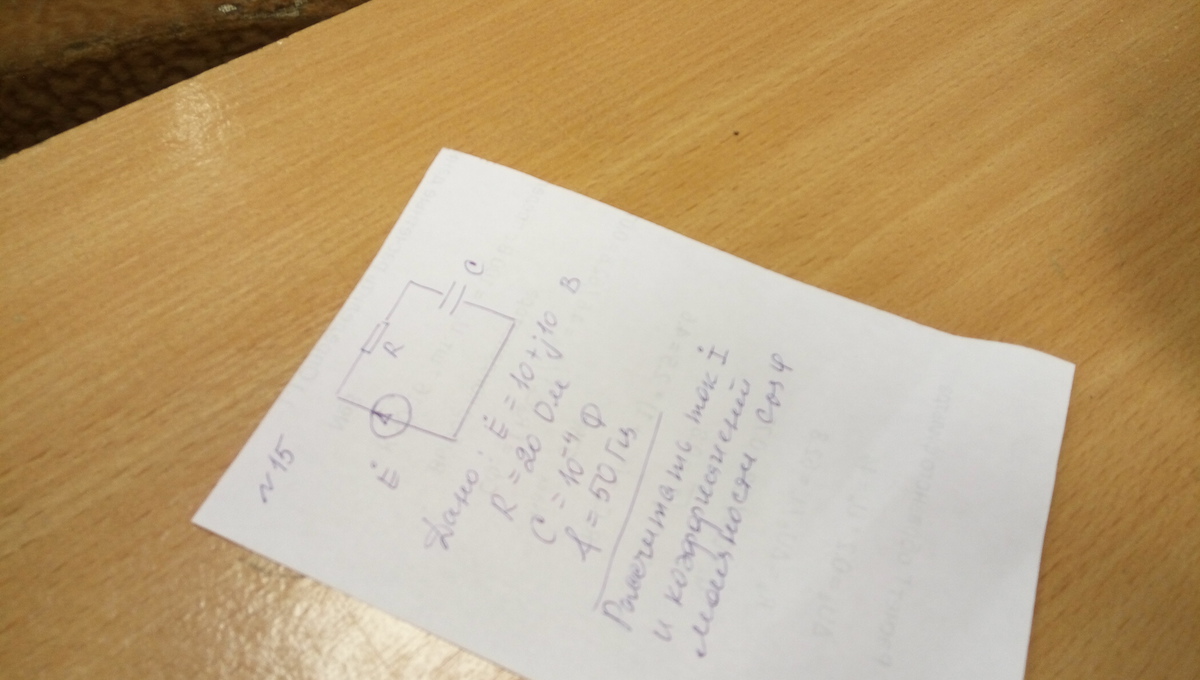 №15
Ė
R
C
Дано: Ė = 10 + j10 В
R = 20 Ом
C = 10⁻⁴ Ф
f = 50 Гц
Рассчитать ток İ
и коэффициент
мощности cos φ